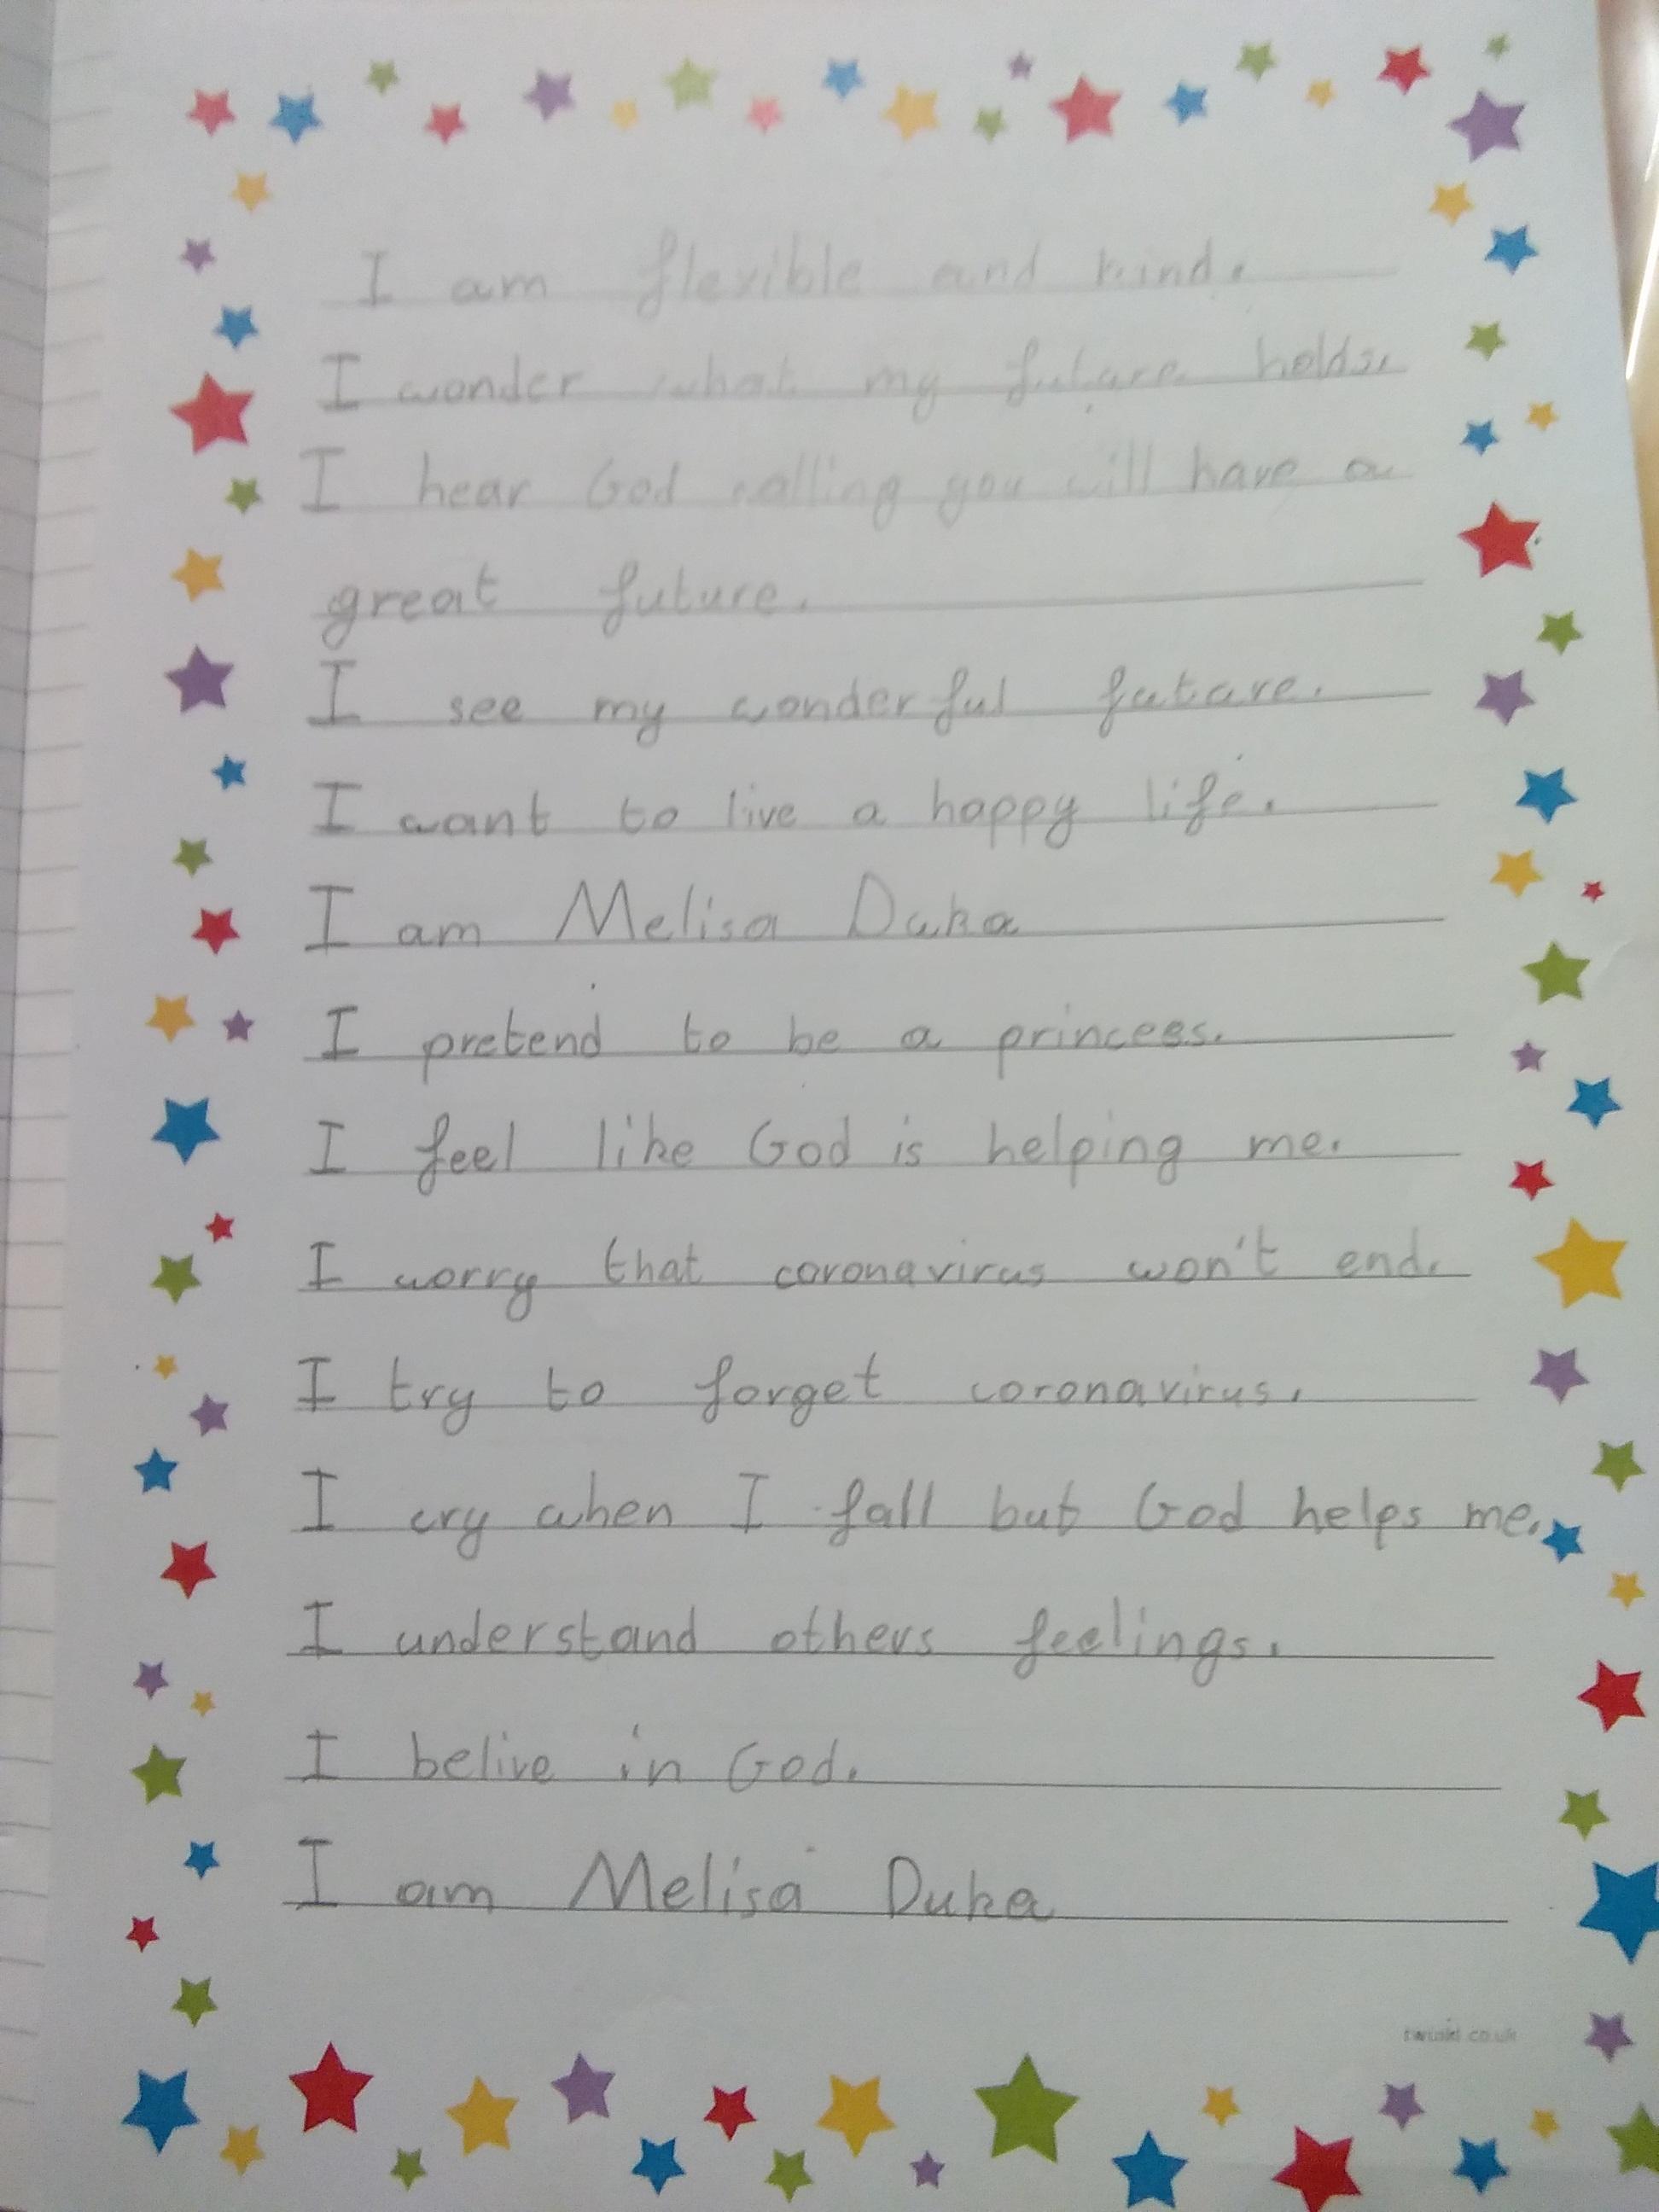 I am flexible and kind.
I wonder what my future holds.
I hear God calling you will have a
great future.
I see my wonderful future.
I want to live a happy life.
I am Melisa Duka
I pretend to be a princess.
I feel like God is helping me.
I worry that coronavirus won't end.
I try to forget coronavirus.
I cry when I fall but God helps me.
I understand others feelings.
I belive in God.
I am Melisa Duka
twinkl.co.uk